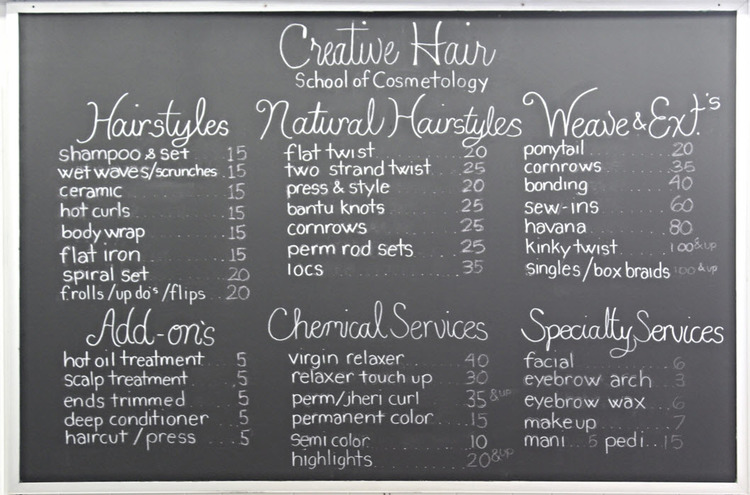 Creative Hair
School of Cosmetology
Hairstyles
shampoo & set 15
wet waves/scrunches 15
ceramic 15
hot curls 15
body wrap 15
flat iron 15
spiral set 20
f.rolls/up do's/flips 20
Natural Hairstyles
flat twist 20
two strand twist 25
press & style 20
bantu knots 25
cornrows 25
perm rod sets 25
locs 35
Weave & Ext.'s
ponytail 20
cornrows 35
bonding 40
sew-ins 60
havana 80
kinky twist 100 & up
singles/box braids 100 & up
Add-on's
hot oil treatment 5
scalp treatment 5
ends trimmed 5
deep conditioner 5
haircut/press 5
Chemical Services
virgin relaxer 40
relaxer touch up 30
perm/jheri curl 35 & up
permanent color 15
semi color 10
highlights 20 & up
Specialty Services
facial 6
eyebrow arch 3
eyebrow wax 6
make up 7
mani 5 pedi 15